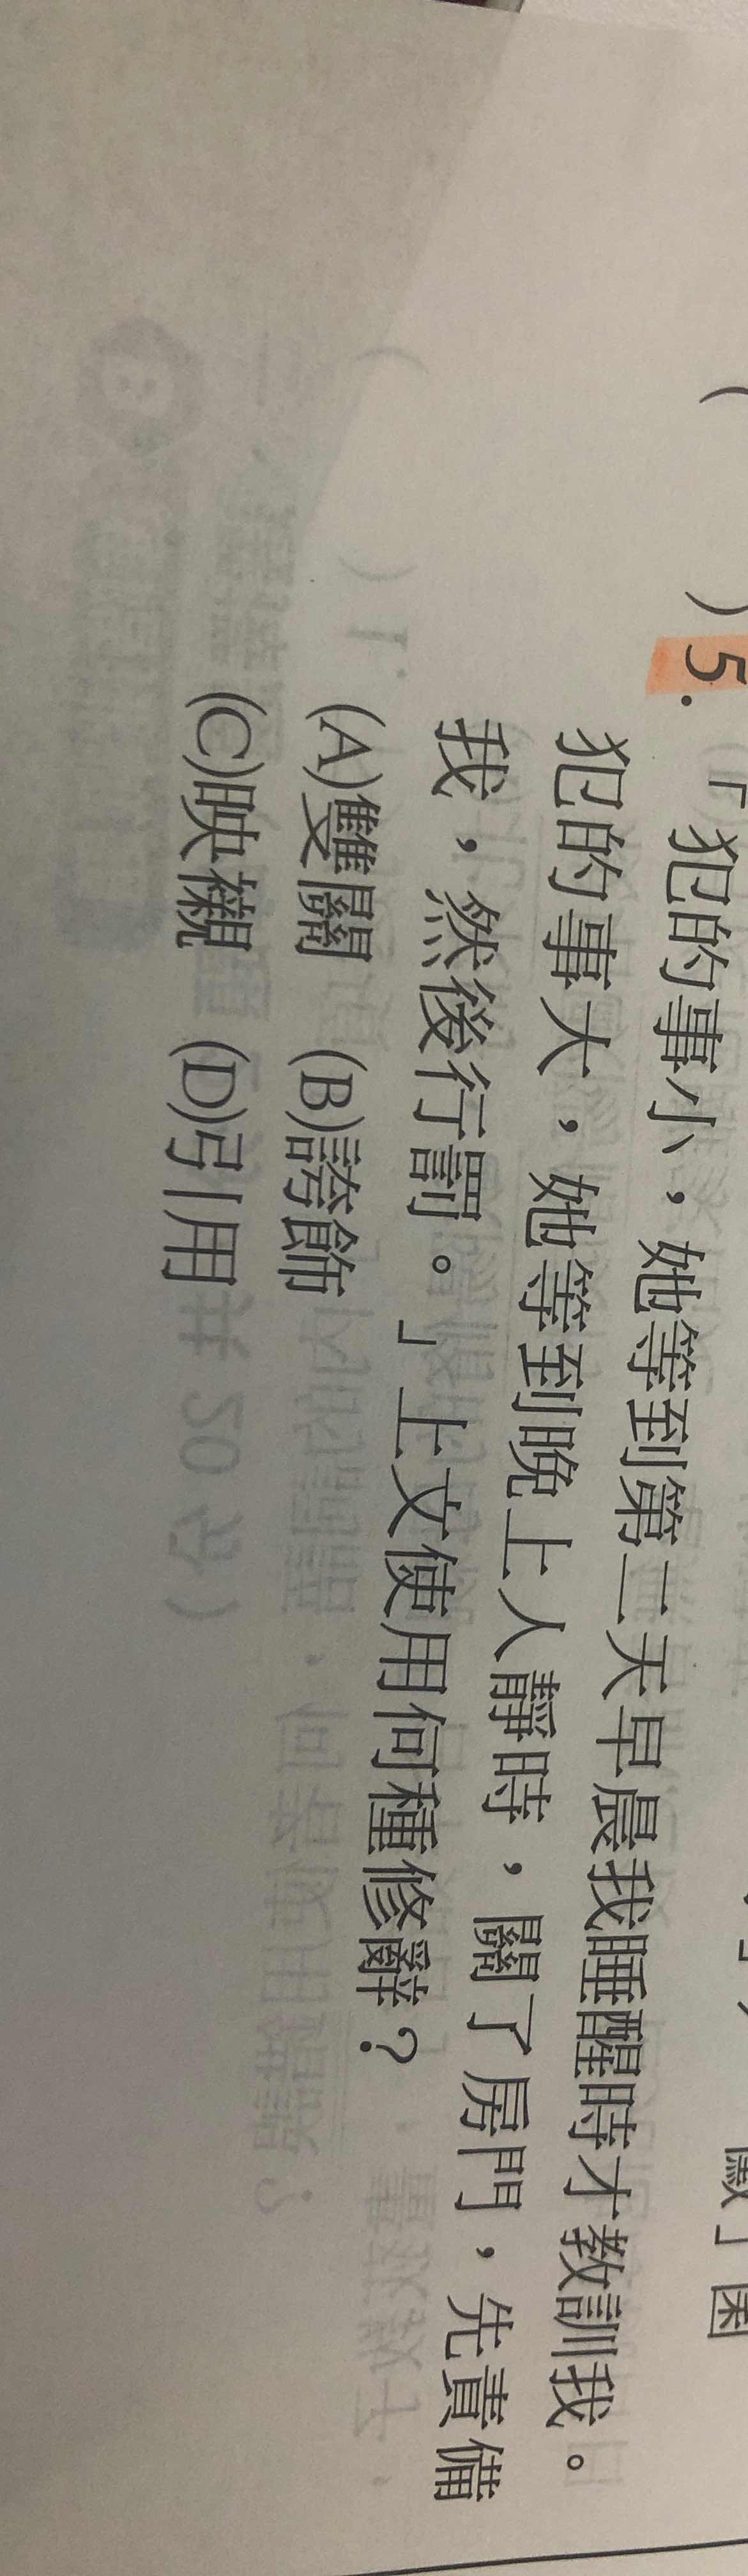 ( )5.「犯的事小，她等到第二天早晨我睡醒時才教訓我。
犯的事大，她等到晚上人靜時，關了房門，先責備
我，然後行罰。」上文使用何種修辭？
(A)雙關 (B)誇飾
(C)映襯 (D)引用